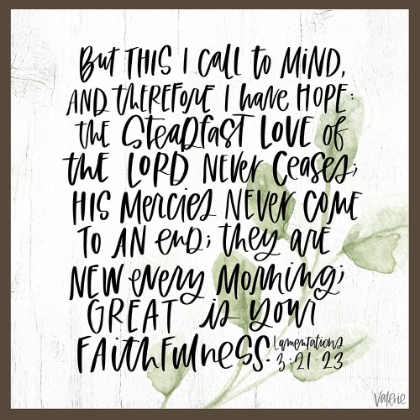 But THIS I call to MIND,
AND therefore I have HOPE:
the SteaDfast LOVE of
the LORD NEVer Ceases;
HIS Mercies NEVER COME
TO AN enD; they are
NEW every Morning;
GREAT is your
FAIthfulness.
Lamentations
3:21 23
Valerie